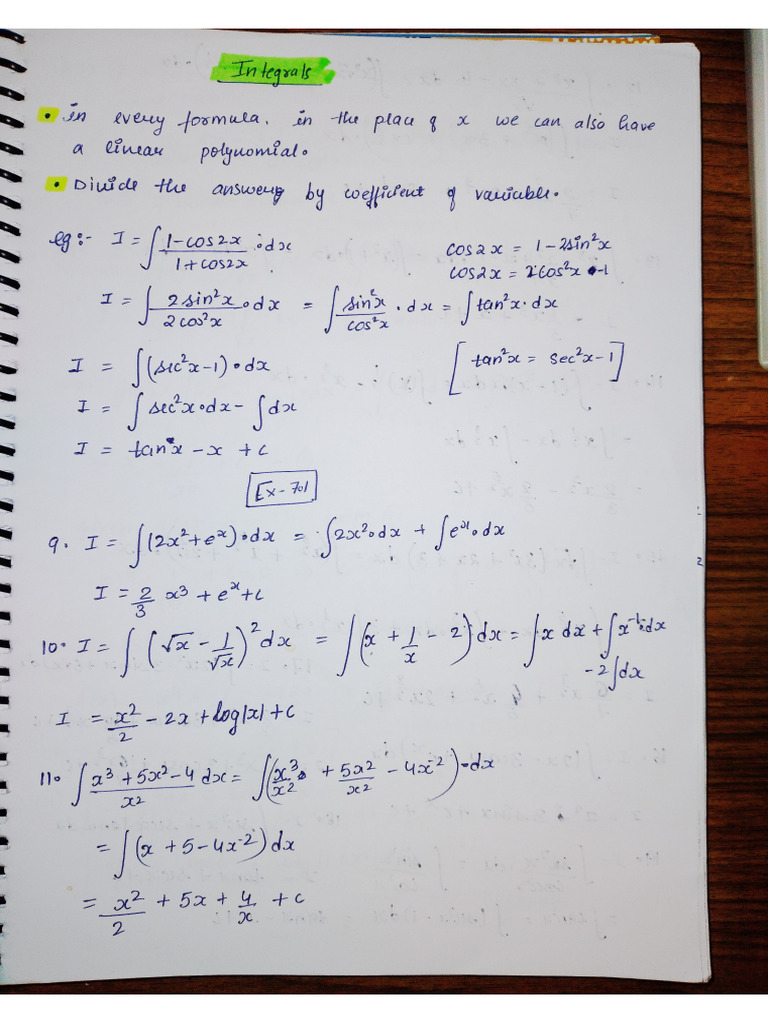 Integrals
• in every formula, in the place of x we can also have
a linear polynomial.
• Divide the answer by coefficient of variable.
eg:- I = ∫ (1-cos2x)/(1+cos2x) · dx
cos2x = 1-2sin²x
cos2x = 2cos²x -1
I = ∫ (2sin²x)/(2cos²x) · dx = ∫ (sin²x)/(cos²x) · dx = ∫ tan²x · dx
I = ∫(sec²x-1) · dx [tan²x = sec²x-1]
I = ∫ sec²x · dx - ∫ dx
I = tan x - x + c
Ex-7.1
9. I = ∫(2x²+eˣ) · dx = ∫2x² · dx + ∫eˣ · dx
I = 2/3 x³ + eˣ + c
10. I = ∫ (√x - 1/√x)² dx = ∫(x + 1/x - 2) dx = ∫x dx + ∫x⁻¹ · dx
-2∫dx
I = x²/2 - 2x + log|x| + c
11. ∫ (x³+5x²-4)/x² dx = ∫(x³/x² + 5x²/x² - 4x⁻²) · dx
= ∫(x + 5 - 4x⁻²) dx
= x²/2 + 5x + 4/x + c